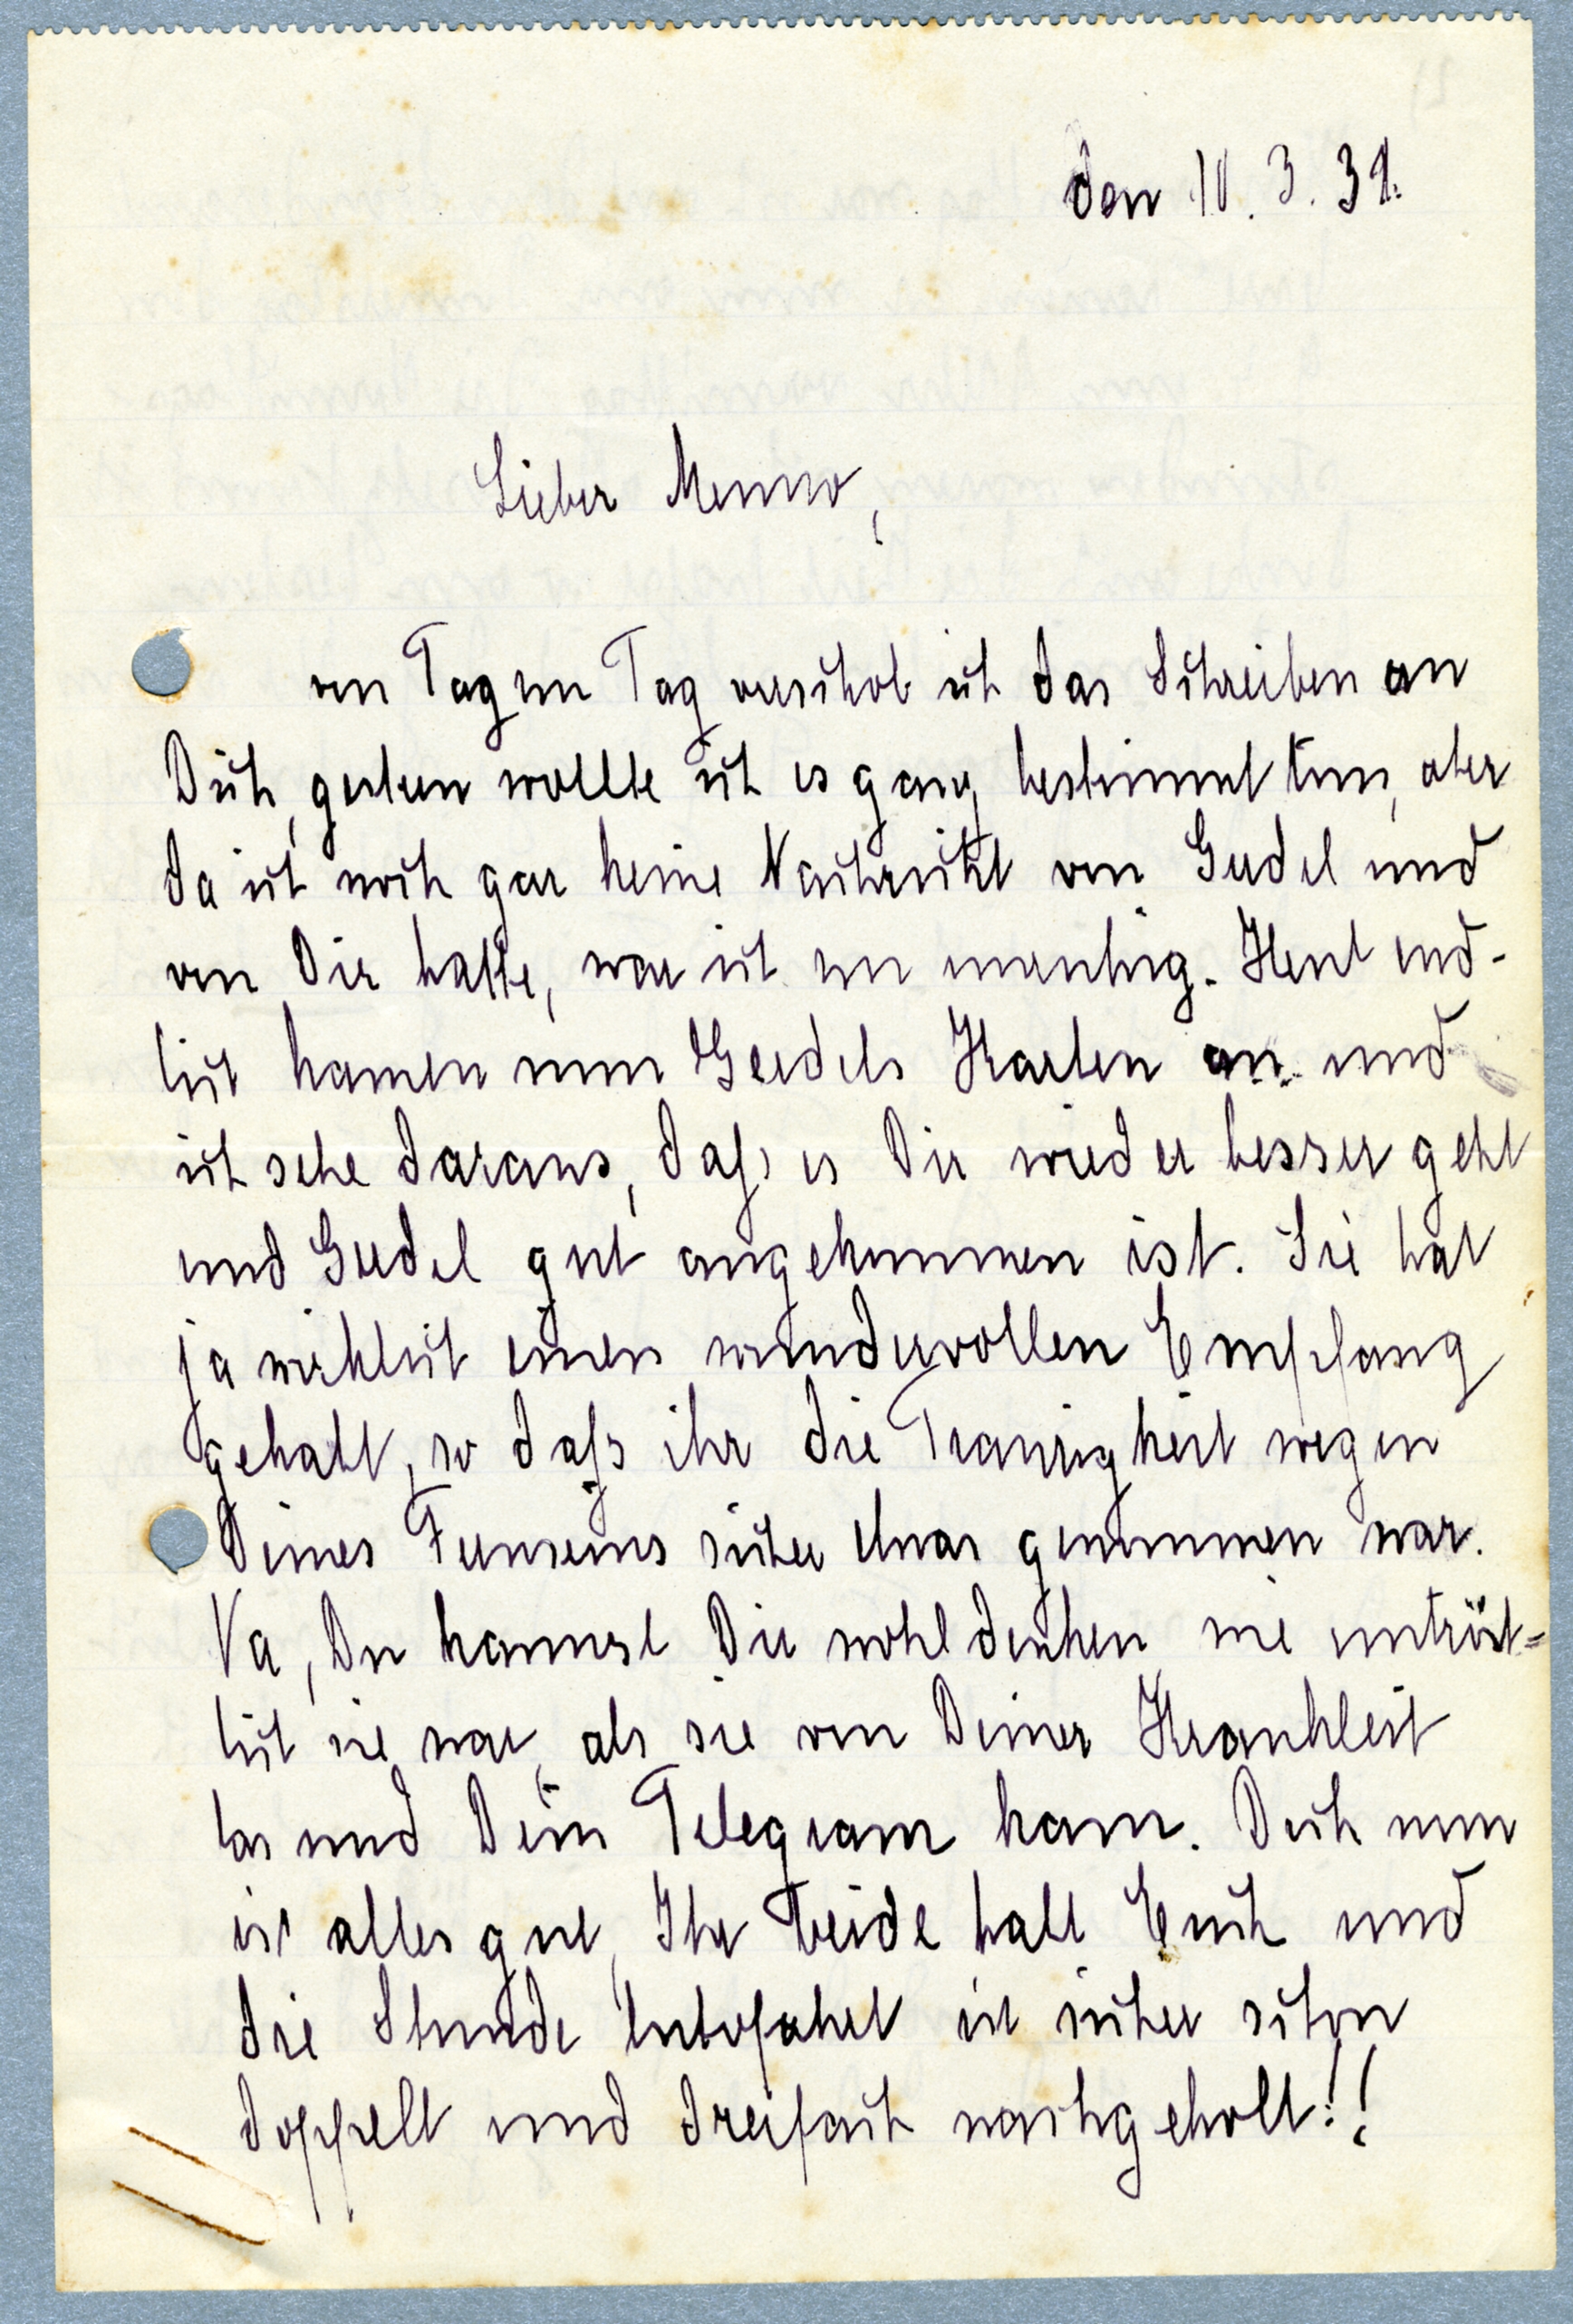 den 10. 3. 31.
Lieber Menno,
von Tag zu Tag verschob ich das Schreiben an
Dich, gestern wollte ich es ganz bestimmt tun, aber
da ich noch gar keine Nachricht von Gredel und
von Dir hatte, war ich zu unruhig. Heut end-
lich kamen nun Gredels Karten an und
ich sehe daraus, daß es Dir wieder besser geht
und Gredel gut angekommen ist. Sie hat
ja wirklich einen wundervollen Empfang
gehabt, so daß ihr die Traurigkeit wegen
Deines Fernseins sicher etwas genommen war.
Na, Du kannst Dir wohl denken wie untröst-
lich sie war, als sie von Deiner Krankheit
las und Dein Telegram kam. Doch nun
ist alles gut, Ihr beide habt Euch und
die Stunde Autofahrt ist sicher schon
doppelt und dreifach nachgeholt!!